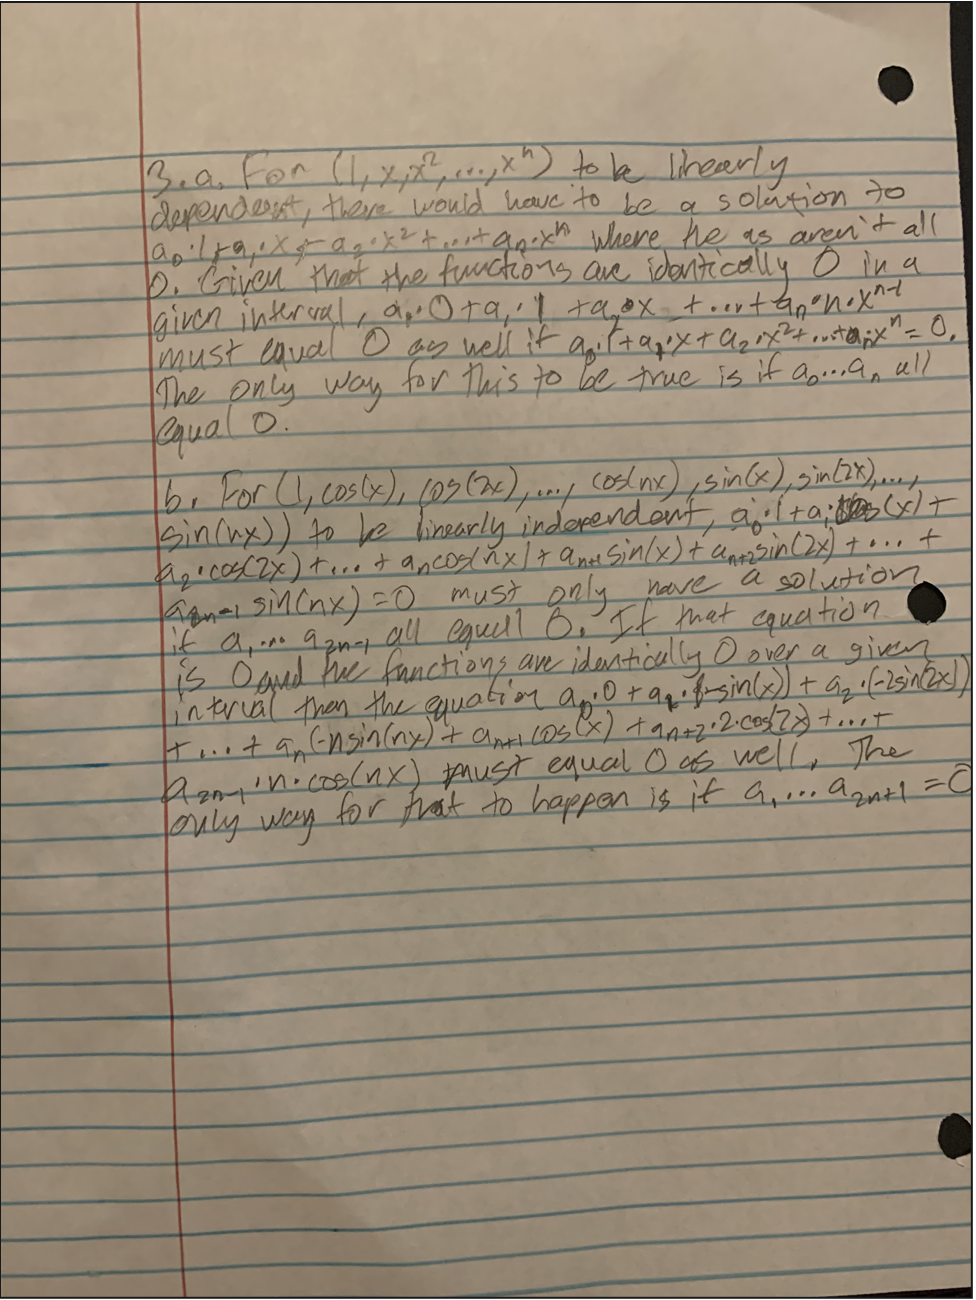 3.a. For (1, x, x², ..., xⁿ) to be linearly
dependent, there would have to be a solution to
a₀·1+a₁·x+a₂·x²+...+aₙ·xⁿ where he as aren't all
0. Given that the functions are identically 0 in a
given interval, a₀·0+a₁·1 +a₂·x +...+aₙ·n·xⁿ⁻¹
must equal 0 as well if a₀·1+a₁·x+a₂·x²+...+aₙ·xⁿ=0.
The only way for this to be true is if a₀...aₙ all
equal 0.
b. For (1, cos(x), cos(2x), ..., cos(nx), sin(x), sin(2x), ...,
sin(nx)) to be linearly independent, a₀·1+a₁·cos(x)+
a₂·cos(2x)+...+aₙcos(nx)+aₙ₊₁sin(x)+aₙ₊₂sin(2x)+...+
a₂ₙ₋₁ sin(nx)=0 must only have a solution
if a₁...a₂ₙ₋₁ all equall 0. If that equation
is 0 and the functions are identically 0 over a given
interval then the equation a₀·0+a₁·(-sin(x))+a₂·(-2sin(2x))
+...+aₙ(-nsin(nx)+aₙ₊₁cos(x)+aₙ₊₂·2·cos(2x)+...+
a₂ₙ₋₁·n·cos(nx) must equal 0 as well. The
only way for that to happen is if a₁...a₂ₙ₊₁=0